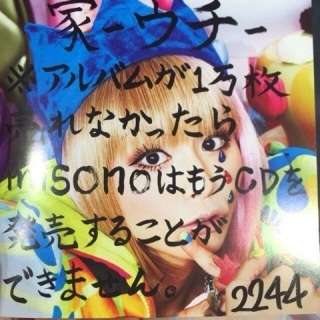 家-ウチ-
※アルバムが1万枚
売れなかったら
misonoはもうCDを
発売することが
できません。
2244